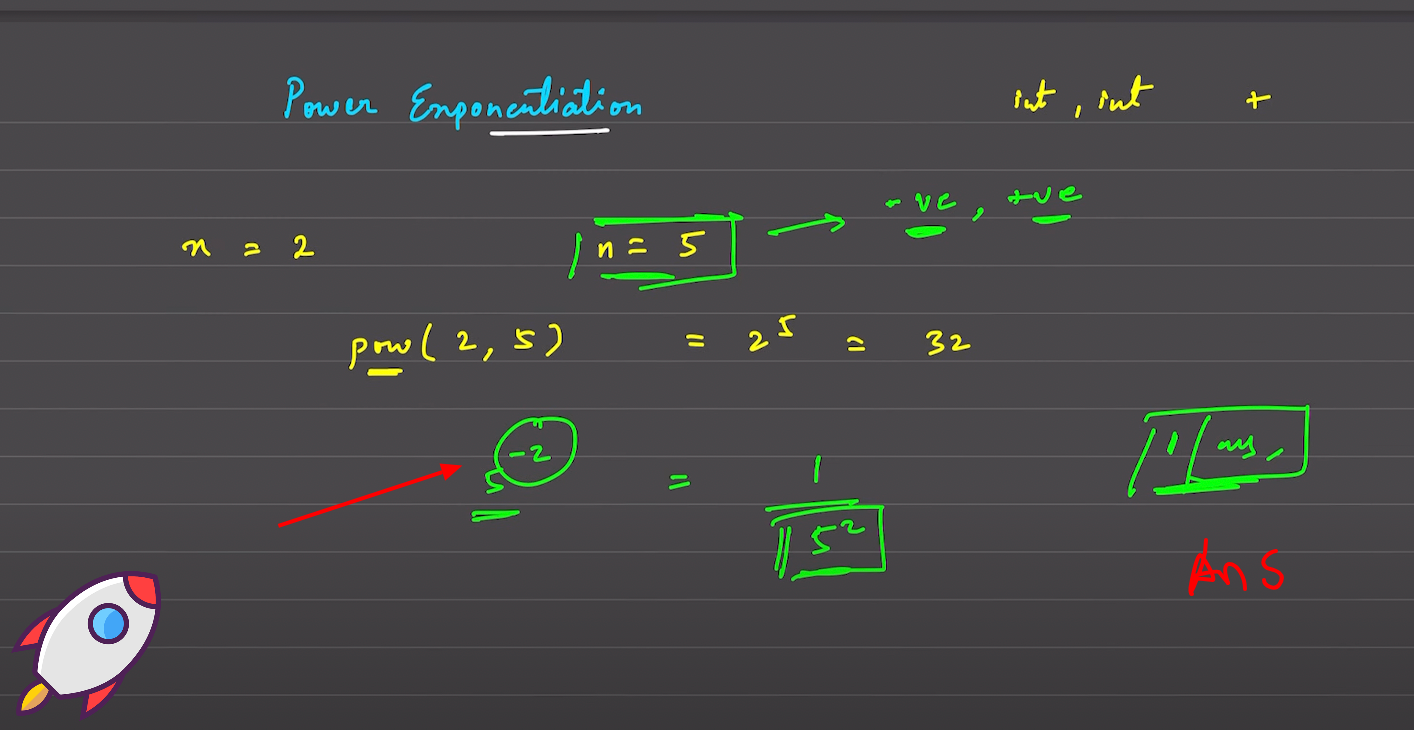 Power Exponentiation int, int +
x = 2 n = 5 → -ve, +ve
pow(2, 5) = 2⁵ = 32
5⁻² = 1/5² 1/ans,
Ans